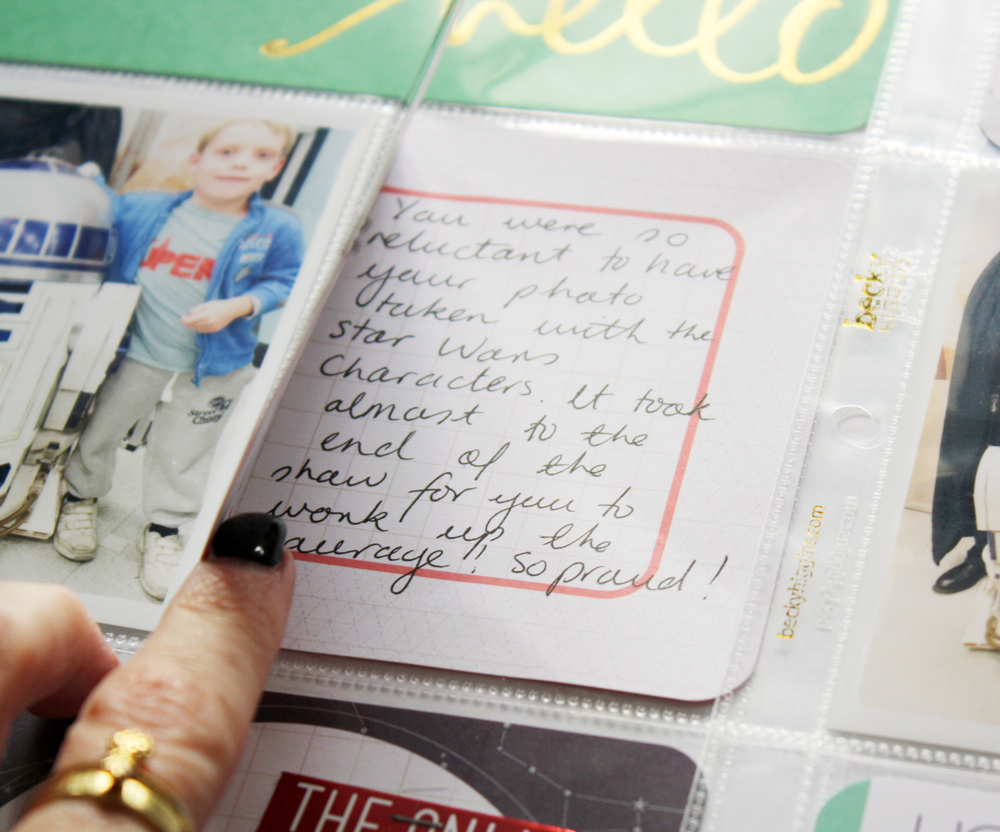 hello
SUPER
You were so
reluctant to have
your photo
taken with the
star Wars
Characters. It took
almost to the
end of the
show for you to
work up the
courage!! So proud!
becky
higgins
beckyhiggins.com
THE ONLY